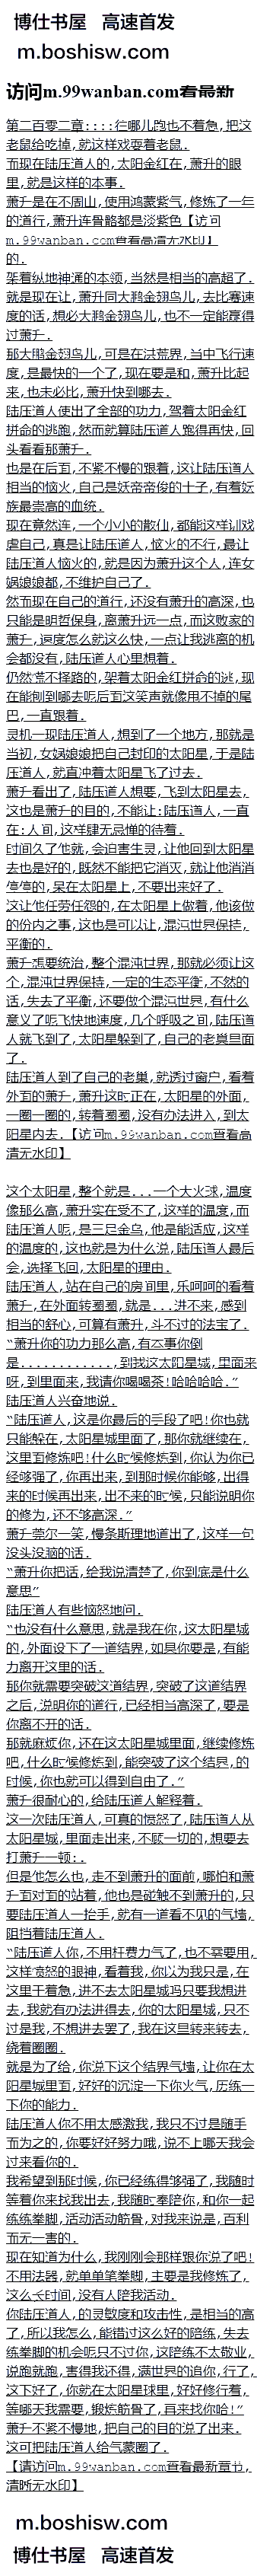 博仕书屋 高速首发
m.boshisw.com
访问m.99wanban.com看最新
第二百零二章::::往哪儿跑也不着急,把这
老鼠给吃掉,就这样戏耍着老鼠.
而现在陆压道人的,太阳金红在,萧升的眼
里,就是这样的本事.
萧升是在不周山,使用鸿蒙紫气,修炼了一年
的道行,萧升连骨骼都是淡紫色【访问
m.99wanban.com查看高清无水印】
的.
架着纵地神通的本领,当然是相当的高超了.
就是现在让,萧升同大鹏金翅鸟儿,去比赛速
度的话,想必大鹏金翅鸟儿,也不一定能赢得
过萧升.
那大鹏金翅鸟儿,可是在洪荒界,当中飞行速
度,是最快的一个了,现在要是和,萧升比起
来,也未必比,萧升快到哪去.
陆压道人使出了全部的功力,驾着太阳金红
拼命的逃跑,然而就算陆压道人跑得再快,回
头看看那萧升.
也是在后面,不紧不慢的跟着,这让陆压道人
相当的恼火,自己是妖帝帝俊的十子,有着妖
族最崇高的血统.
现在竟然连,一个小小的散仙,都能这样训戏
虐自己,真是让陆压道人,恼火的不行,最让
陆压道人恼火的,就是因为萧升这个人,连女
娲娘娘都,不维护自己了.
然而现在自己的道行,还没有萧升的高深,也
只能是明哲保身,离萧升远一点,而这败家的
萧升,速度怎么就这么快,一点让我逃离的机
会都没有,陆压道人心里想着.
仍然慌不择路的,架着太阳金红拼命的逃,现
在能刨到哪去呢后面这笑声就像甩不掉的尾
巴,一直跟着.
灵机一现陆压道人,想到了一个地方,那就是
当初,女娲娘娘把自己封印的太阳星,于是陆
压道人,就直冲着太阳星飞了过去.
萧升看出了,陆压道人想要,飞到太阳星去,
这也是萧升的目的,不能让:陆压道人,一直
在:人间,这样肆无忌惮的待着.
时间久了他就,会迫害生灵,让他回到太阳星
去也是好的,既然不能把它消灭,就让他消消
停停的,呆在太阳星上,不要出来好了.
这让他任劳任怨的,在太阳星上做着,他该做
的份内之事,这也是可以让,混沌世界保持,
平衡的.
萧升想要统治,整个混沌世界,那就必须让这
个,混沌世界保持,一定的生态平衡,不然的
话,失去了平衡,还要做个混沌世界,有什么
意义了呢飞快地速度,几个呼吸之间,陆压道
人就飞到了,太阳星躲到了,自己的老巢里面
了.
陆压道人到了自己的老巢,就透过窗户,看着
外面的萧升,萧升这时正在,太阳星的外面,
一圈一圈的,转着蜀蜀,没有办法进入,到太
阳星内去.【访问m.99wanban.com查看高
清无水印】
这个太阳星,整个就是...一个大火球,温度
像那么高,萧升实在受不了,这样的温度,而
陆压道人呢,是三足金乌,他是能适应,这样
的温度的,这也就是为什么说,陆压道人最后
会,选择飞回,太阳星的理由.
陆压道人,站在自己的房间里,乐呵呵的看着
萧升,在外面转蜀蜀,就是...进不来,感到
相当的舒心,可算有萧升,斗不过的法宝了.
“萧升你的功力那么高,有本事你倒
是............,到我这太阳星城,里面来
呀,到里面来,我请你喝喝茶!哈哈哈哈.”
陆压道人兴奋地说.
“陆压道人,这是你最后的手段了吧!你也就
只能躲在,太阳星城里面了,那你就继续在,
这里面修炼吧!什么时候修炼到,你认为你已
经够强了,你再出来,到那时候你能够,出得
来的时候再出来,出不来的时候,只能说明你
的修为,还不够高深.”
萧升莞尔一笑,慢条斯理地道出了,这样一句
没头没脑的话.
“萧升你把话,给我说清楚了,你到底是什么
意思”
陆压道人有些恼怒地问.
“也没有什么意思,就是我在你,这太阳星城
的,外面设下了一道结界,如果你要是,有能
力离开这里的话.
那你就需要突破这道结界,突破了这道结界
之后,说明你的道行,已经相当高深了,要是
你离不开的话.
那就麻烦你,还在这太阳星城里面,继续修炼
吧,什么时候修炼到,能突破了这个结界,的
时候,你也就可以得到自由了.”
萧升很耐心的,给陆压道人解释着.
这一次陆压道人,可真的愤怒了,陆压道人从
太阳星城,里面走出来,不顾一切的,想要去
打萧升一顿:.
但是他怎么也,走不到萧升的面前,哪怕和萧
升面对面的站着,他也是碰触不到萧升的,只
要陆压道人一抬手,就有一道看不见的气墙,
阻挡着陆压道人.
“陆压道人你,不用枉费力气了,也不要要用,
这样愤怒的眼神,看着我,你以为我只是,在
这里干着急,进不去太阳星城吗只要我想进
去,我就有办法进得去,你的太阳星城,只不
过是我,不想进去罢了,我在这里转来转去,
绕着圈圈.
就是为了给,你说下这个结界气墙,让你在太
阳星城里面,好好的沉淀一下你火气,历练一
下你的能力.
陆压道人你不用太感激我,我只不过是随手
而为之的,你要好好努力哦,说不上哪天我会
过来看你的.
我希望到那时候,你已经练得够强了,我随时
等着你来找我出去,我随时奉陪你,和你一起
练练拳脚,活动活动筋骨,对我来说是,百利
而无一害的.
现在知道为什么,我刚刚会那样跟你说了吧!
不用法器,就单单笔拳脚,主要是我修炼了,
这么长时间,没有人陪我活动.
你陆压道人,的灵敏度和攻击性,是相当的高
了,所以我怎么,能错过这么好的陪练,失去
练拳脚的机会呢只不过你,这陪练不太敬业,
说跑就跑,害得我还得,满世界的追你,行了,
这下好了,你就在太阳星球里,好好修行着,
等哪天我需要,锻炼筋骨了,再来找你哈!”
萧升不紧不慢地,把自己的目的说了出来.
这可把陆压道人给气蒙圈了.
【请访问m.99wanban.com查看最新章节,
清晰无水印】
m.boshisw.com
博仕书屋 高速首发